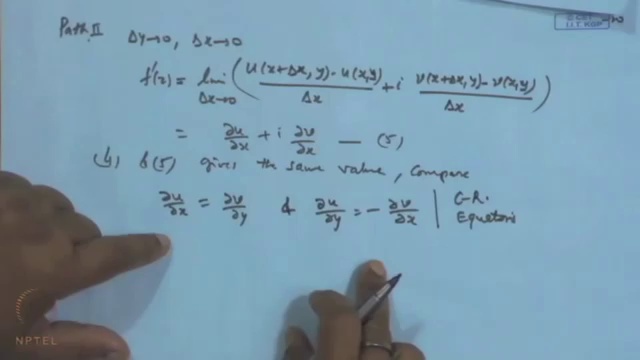 Path II Δy→0, Δx→0
f'(z) = lim Δx→0 ( (u(x+Δx, y) - u(x,y))/Δx + i (v(x+Δx, y) - v(x,y))/Δx )
= ∂u/∂x + i ∂v/∂x — (5)
(4) & (5) gives the same value, compare
∂u/∂x = ∂v/∂y & ∂u/∂y = - ∂v/∂x | C-R. Equations
NPTEL
I.I.T. KGP